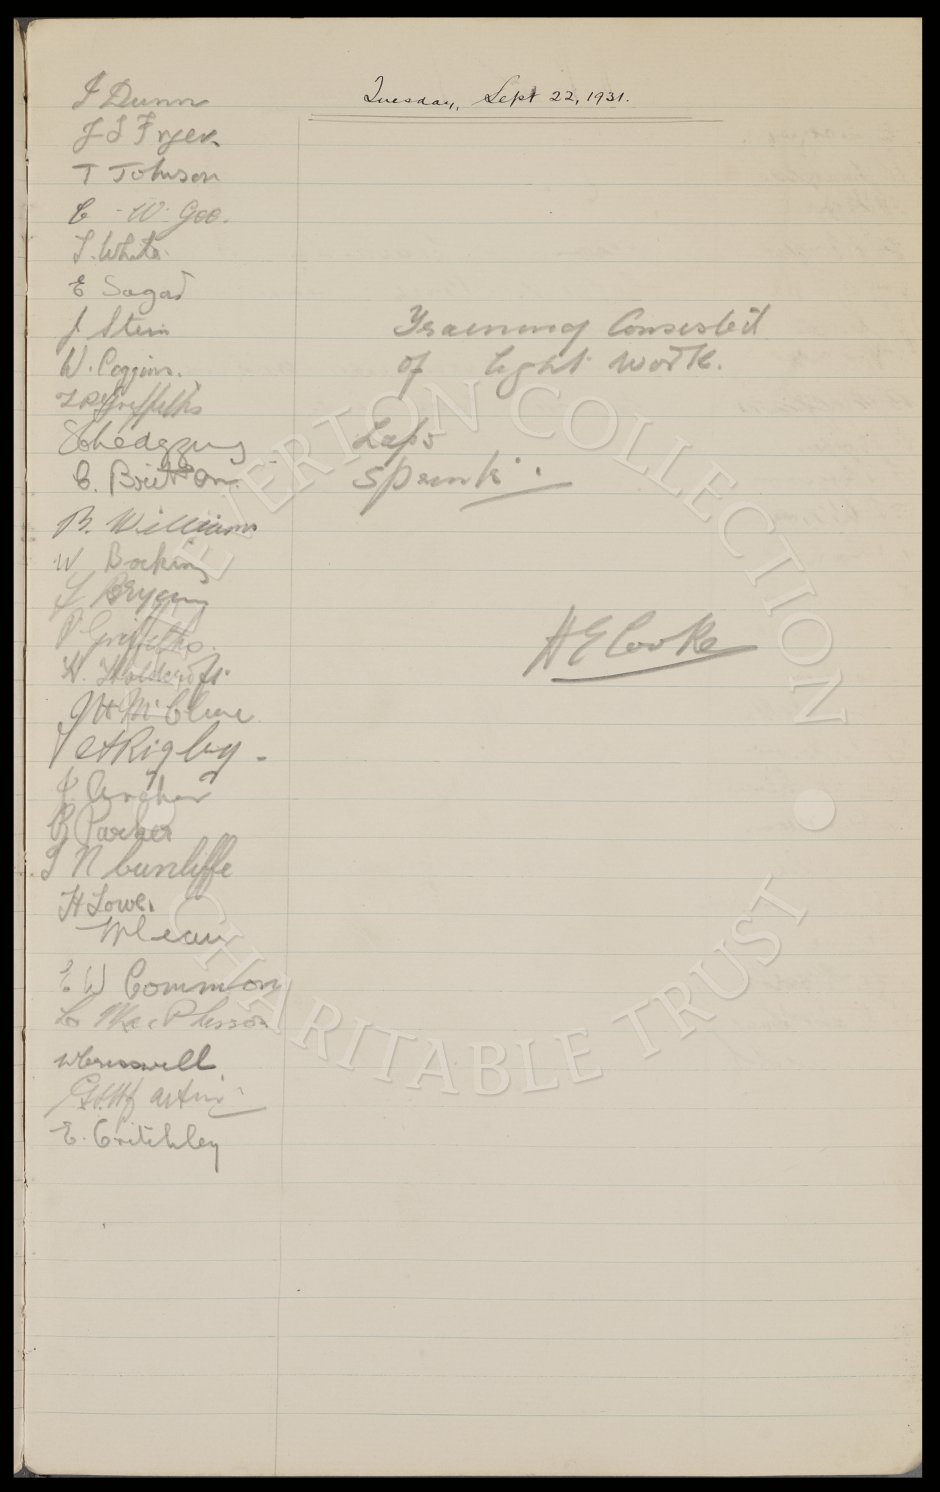 Tuesday, Sept 22, 1931.
J Dunn
J S Fryer
T Johnson
C - W. Gee.
T. White
E Sagar
J Stein
W. Coggins.
T P Griffiths
C. Britton.
B. Williams
W Bocking
P Griffiths.
J H McClure
A Rigby -
J. Archer
R Parker
J N Cunliffe
H Lowe
E W Common
L MacPherson
W Cresswell
G H Martin
E. Critchley
Training Consisted
of light work.
Laps
sprints.
H E Cooke
THE EVERTON COLLECTION • CHARITABLE TRUST •